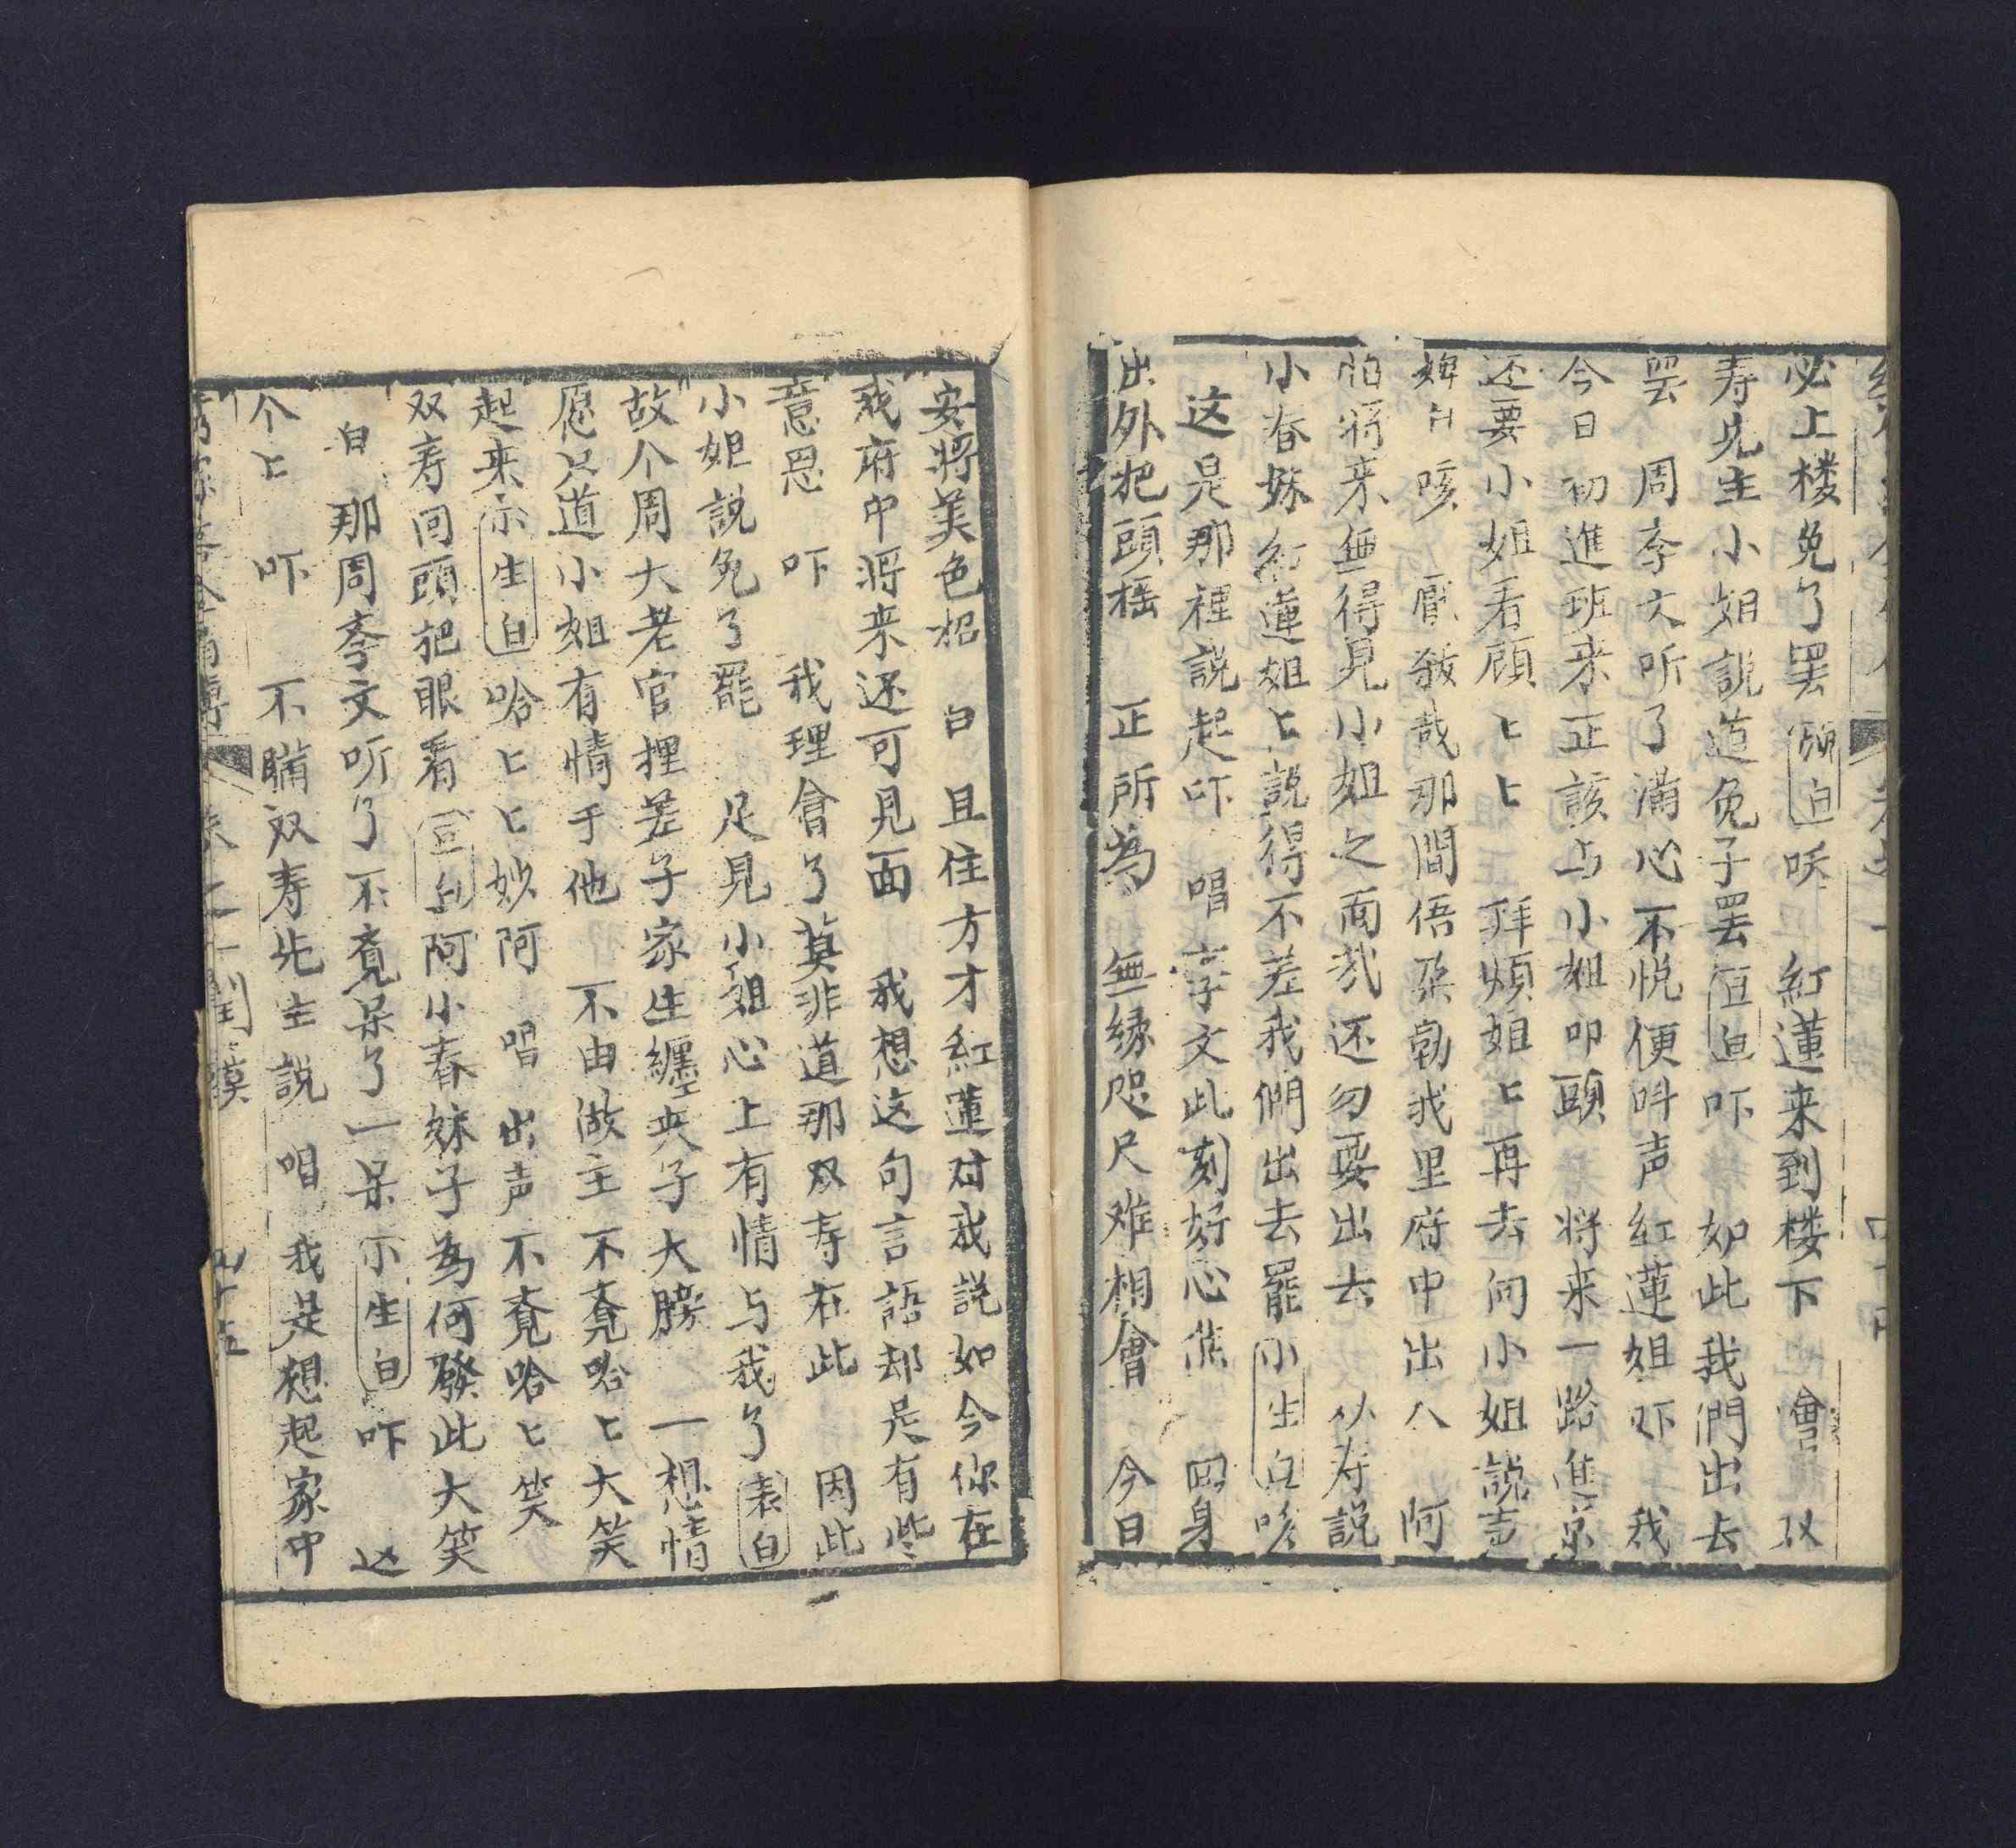 必上楼免了罢 白 呀 紅蓮来到楼下 會 双
寿先生小姐説道免子罢 旦白 吓 如此我門出去
罢 周孝文听了满心不悦便呌声紅蓮姐吓 我
今日初進班来正該与小姐叩頭 将来一路進京
还要小姐看顧ヒヒ 拜煩姐ヒ再去问小姐説声
婢白 咳 厭殺哉那間俉朶勃我里府中出人 阿
怕将来無得見小姐之面哉还勿要出去 双寿説
小春妹紅蓮姐ヒ説得不差我們出去罷 小生白
这是那裡説起吓 唱 孝文此刻好心焦 回身
出外把頭摇 正所為 無缘咫尺难相會 今日
安將美色招 白 且住方才紅蓮对我説如今你在
我府中将来还可見面 我想这句言語却是有些
意思 吓 我理會了莫非道那双寿在此 因此
小姐説免了罷 足見小姐心上有情与我了 表白
故个周大老官捚差子家生纏夹子大膀 一想情
愿只道小姐有情于他 不由做主不覔哈ヒ大笑
起来 小生白 哈ヒヒ妙阿 唱 出声不覔哈ヒ笑
双寿回頭把眼看 旦白 阿小春妹子為何發此大笑
白 那周孝文听了不覔呆了一呆 小生白 吓 这
个ヒ 吓 不瞞双寿先生説 唱 我是想起家中
卷之一 閨謨 四十五